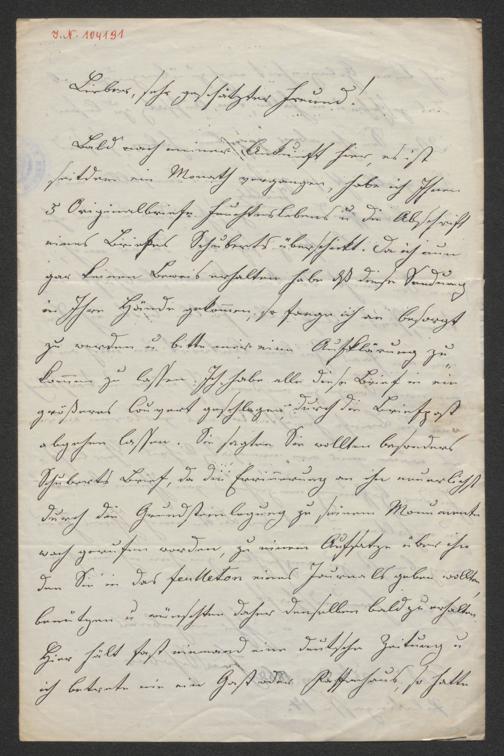 J. N. 104191
Lieber, sehr geschätzter Freund!
Bald nach meiner Ankunft hier, es ist
seitdem ein Monath vergangen, habe ich Ihnen
5 Originalbriefe Feuchterslebens u die Abschrift
eines Briefes Schuberts überschickt. Da ich nun
gar keinen Beweis erhalten habe daß diese Sendung
in Ihre Hände gekommen, so fange ich an besorgt
zu werden u. bitte mir eine Aufklärung zu
kommen zu lassen. Ich habe alle diese Briefe in ein
größeres Couvert geschlagen durch die Briefpost
abgehen lassen. Sie sagten Sie wollten besonders
Schuberts Brief, da die Erinnerung an ihn neuerlichst
durch die Grundsteinlegung zu seinem Monumente
wach gerufen worden, zu einem Aufsatze über ihn
den Sie in das feuilleton eines Journals geben wollten,
benützen u wünschten daher denselben bald zu erhalten
Hier hält fast niemand eine deutsche Zeitung u
ich betrete nie ein Gast oder Kaffeehaus, so hatte